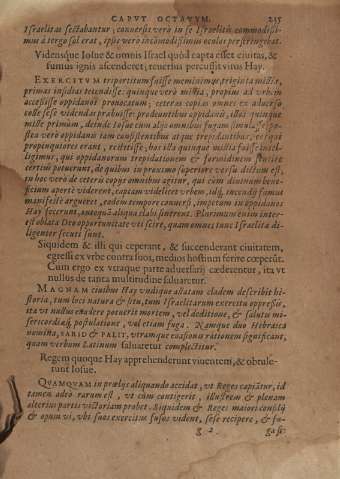 CAPVT OCTAVVM. 215
Israelitas sectabantur, conuersis verò in se Israelitis commodissi-
mus à tergo sol erat, ipsis verò incommodissimus oculos perstringebat.
Vidensque Iosue & omnis Israel quòd capta esset ciuitas, &
fumus ignis ascenderet, reuersus percussit viros Hay.
EXERCITVM tripartitum fuisse meminimus, triginta millia,
primas insidias tetendisse: quinque verò millia, propius ad vrbem
accessisse oppidanos prouocatum; ceteras copias omnes ex aduerso
colle sese videndas prabuisse: prodeuntibus oppidanis, illos quinque
mille primùm, deinde Iosue cum alijs omnibus fugam simulasse:
verò oppidanos tam confidentibus atque trepidantibus, et
propinquatores erant, restitisse: hos illa quinque millia fuisse intel-
ligimus, qui oppidanorum trepidationem & formidinem sentire
certiùs potuerunt, de quibus in proximo superiore versu dictum est,
in hoc verò de ceteris copijs omnibus agitur, qui cùm diuinum bene-
ficium apertè viderent, captam videlicet vrbem, idq́, incendij fumus
manifestè argueret, eodem tempore conuersi, impetum in oppidanos
Hay fecerunt, antequā aliqua elabi sinerent. Plurimùm enim inter-
est oblata Deo opportunitate vti scire, quam omnes tunc Israelita di-
ligenter secuti sunt.
Siquidem & illi qui ceperant, & succenderant ciuitatem,
egressi ex vrbe contra suos, medios hostium ferire cœperūt.
Cùm ergo ex vtraque parte aduersarij cæderentur, ita vt
nullus de tanta multitudine saluaretur.
MAGNAM ciuibus Hay vndique allatam cladem describit hi-
storia, tum loci natura & situ, tum Israelitarum exercitu oppressis,
ita vt nullus euadere potuerit mortem, vel deditione, & salutis mi-
sericordiaq́, postulatione, vel etiam fuga. Namque duo Hebraica
nomina, SARID & PALIT, vtramque euasionis rationem significant,
quam verbum Latinum saluaretur complectitur.
Regem quoque Hay apprehenderunt viuentem, & obtule-
runt Iosue.
QVAMQVAM in prælijs aliquando accidat, vt Reges capiātur, id
tamen adeo rarum est, vt cùm contigerit, illustrem & plenam
alterius partis victoriam probet. Siquidem & Reges maiori consilij
& opum vi, vbi suos exercitus fusos vident, sese recipere, & fu-
g. 2. ga si-